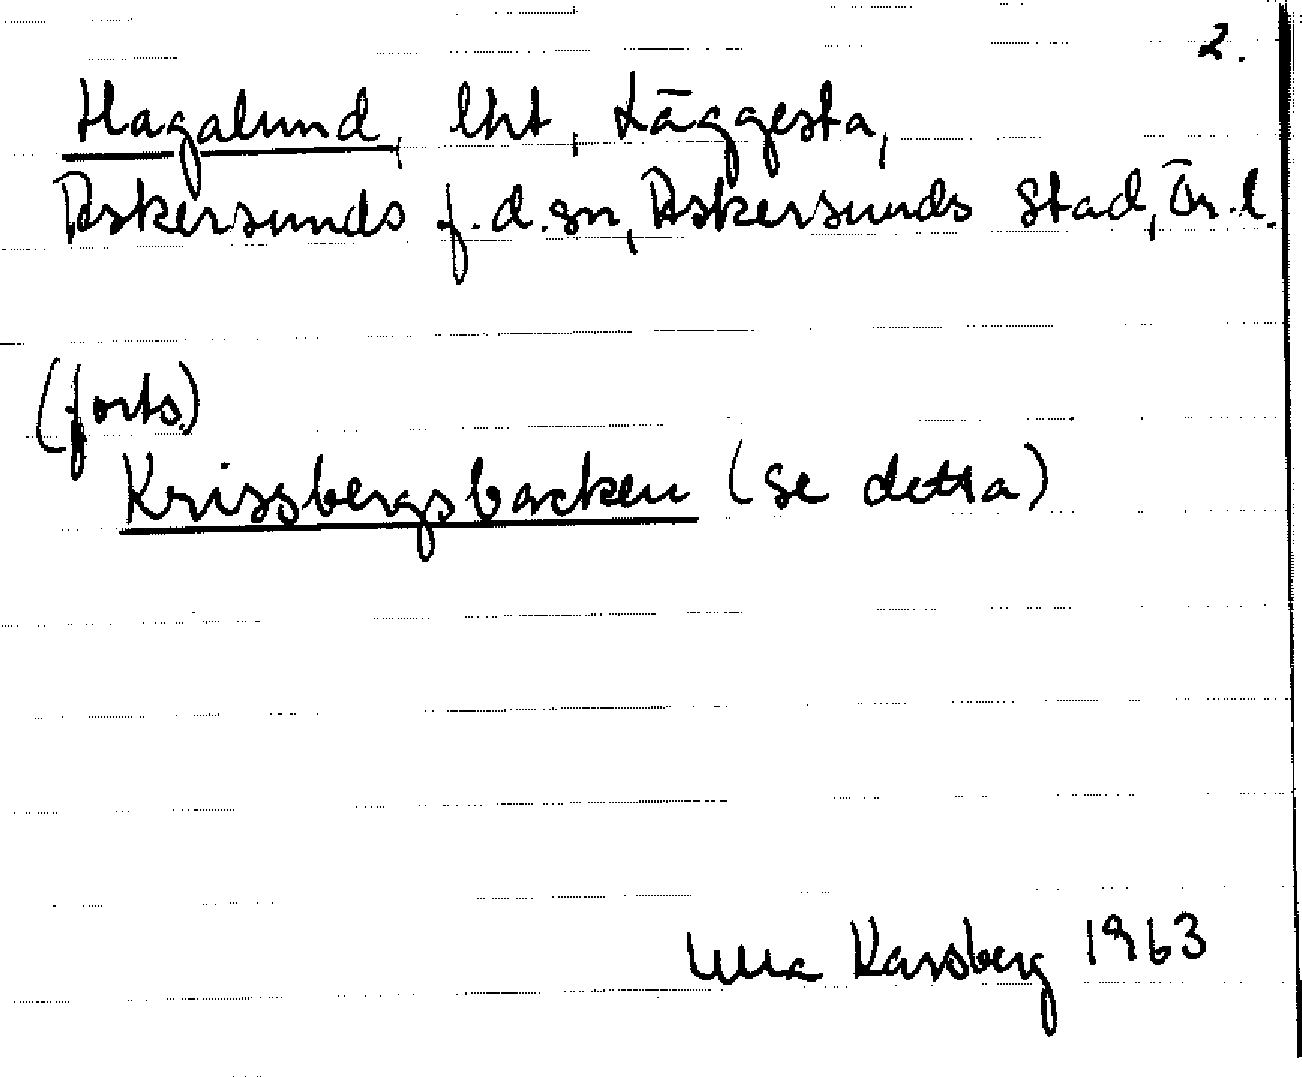 2.
Hagalund, lht, Läggesta,
Askersunds f.d.sn, Askersunds stad, Ör.l.
(forts.)
Krissbergsbacken (se detta)
Ulla Karsberg 1963